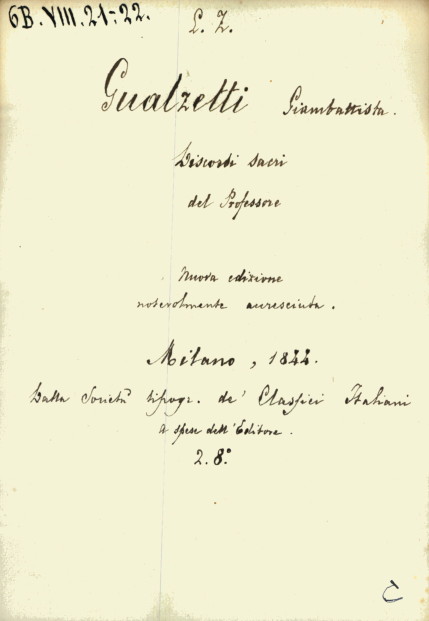 6B.VIII.21-22.
L. Z.
Gualzetti Giambattista.
Discorsi sacri
del Professore
Nuova edizione
notevolmente accresciuta.
Milano, 1844.
Dalla Società tipogr. de' Classici Italiani
a spese dell'Editore.
2. 8.°